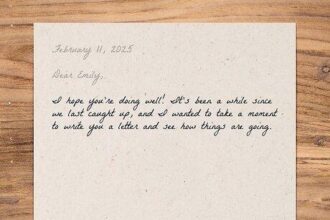 February 11, 2025
Dear Emily,
I hope you're doing well! It's been a while since
we last caught up, and I wanted to take a moment
to write you a letter and see how things are going.